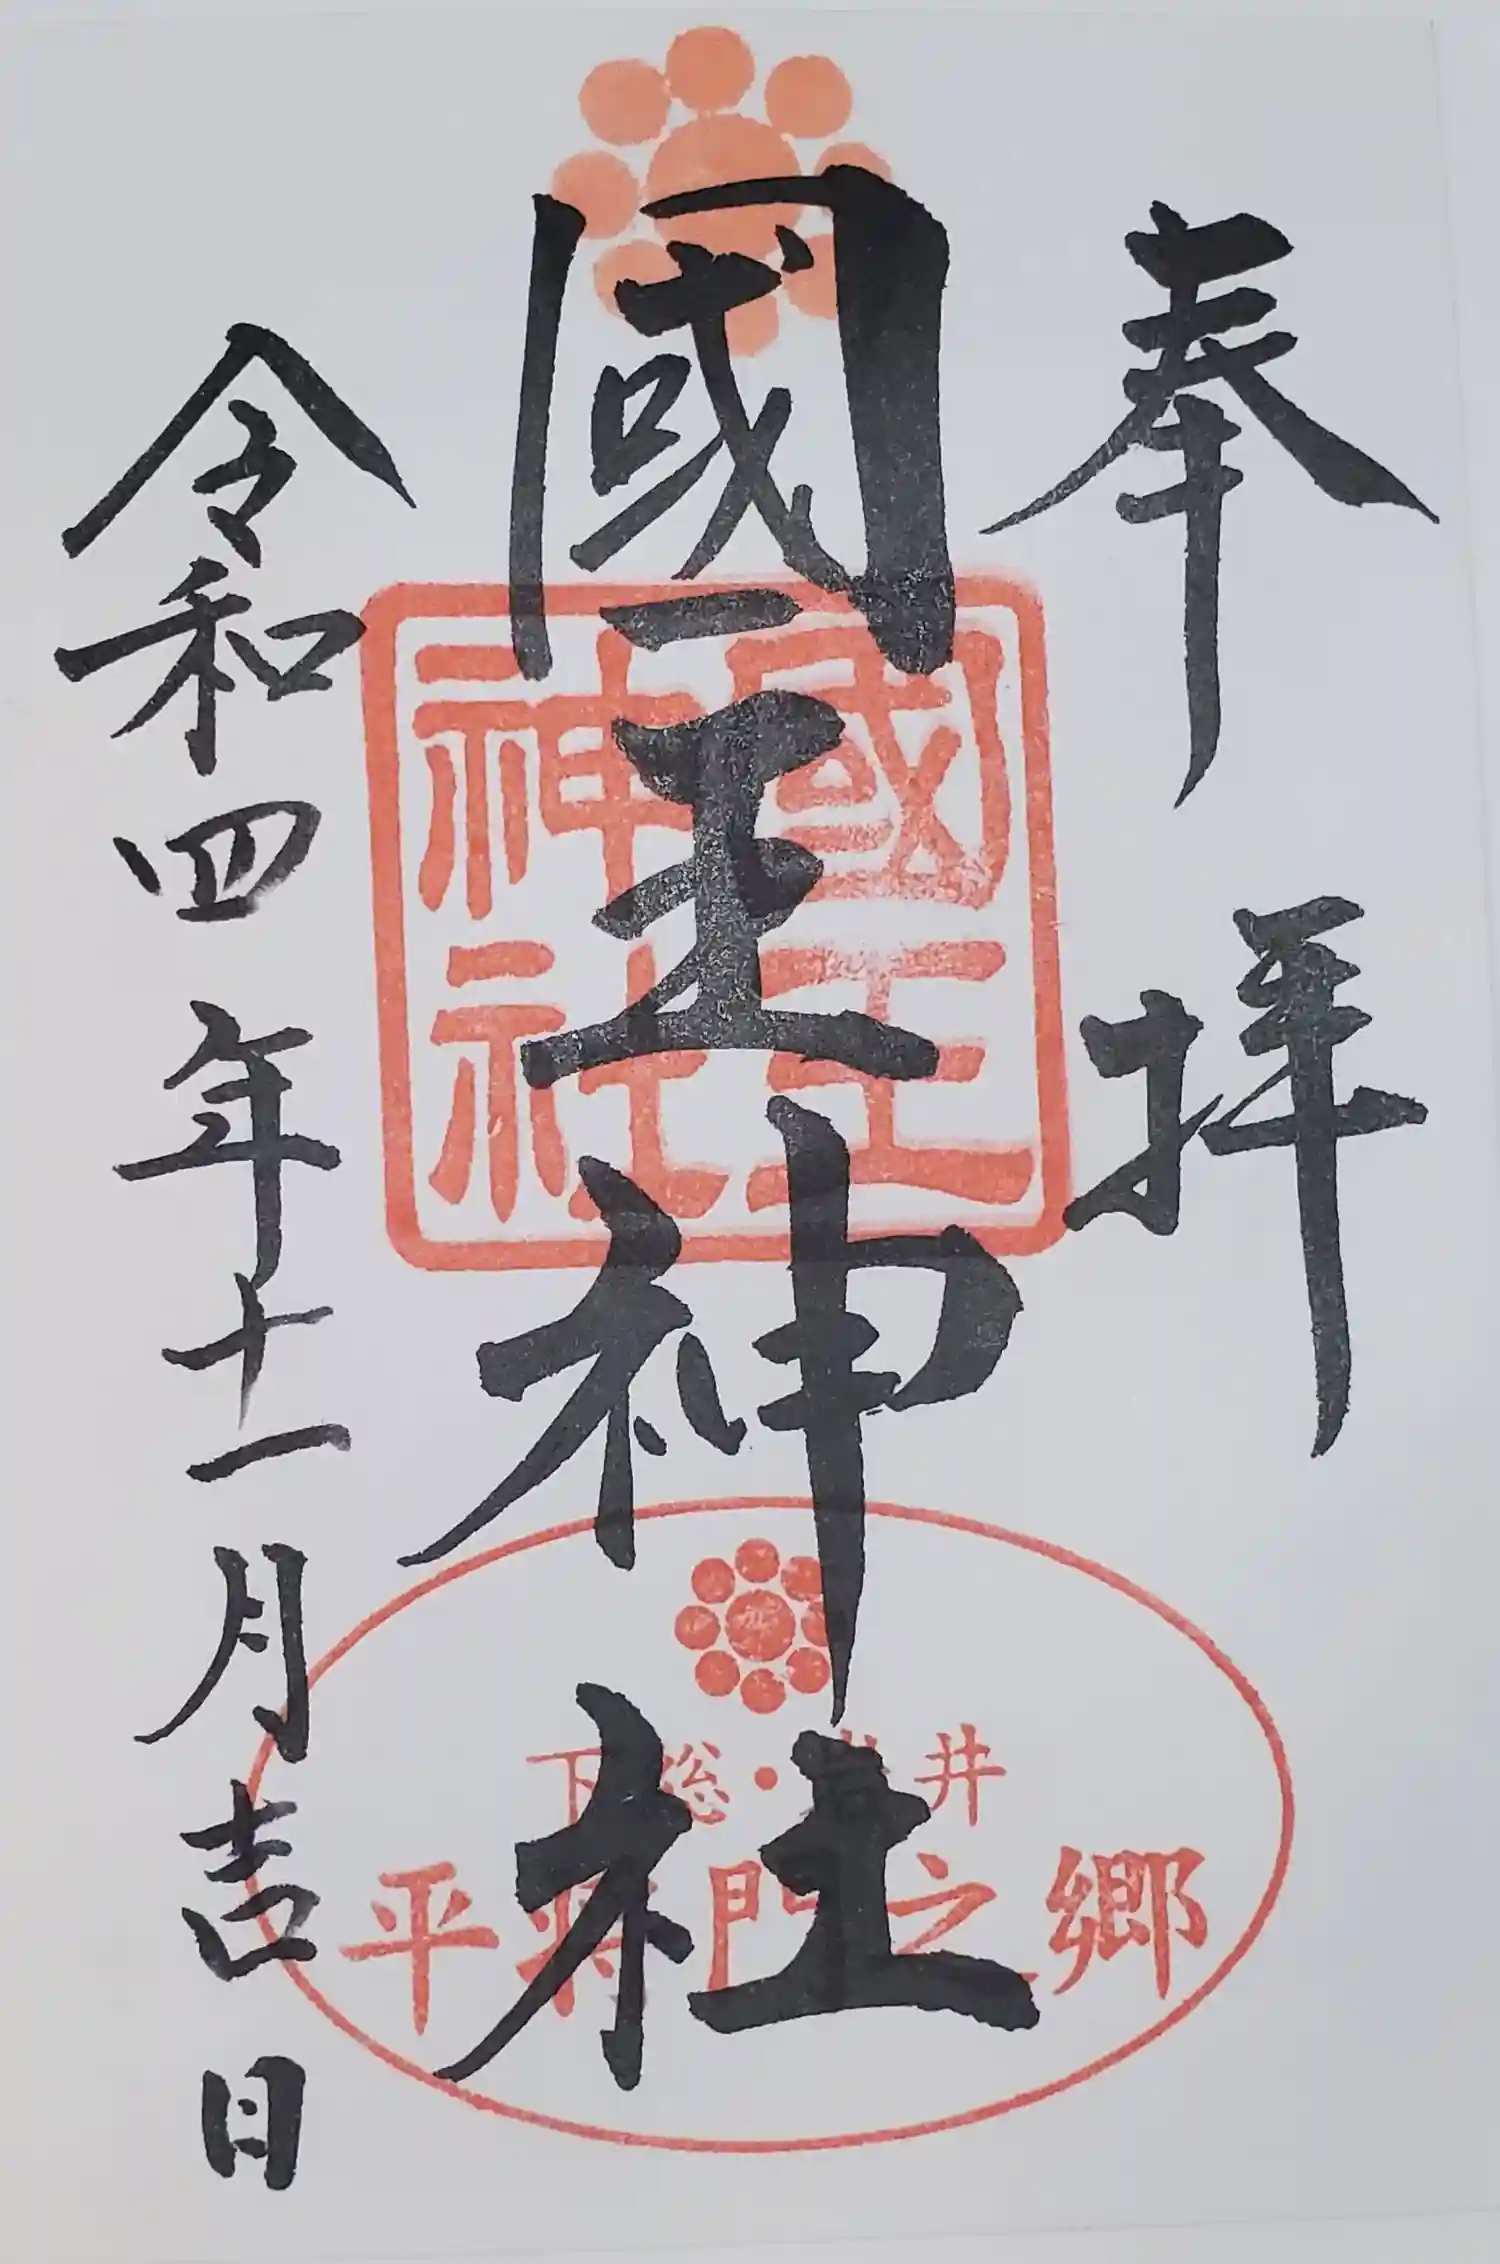 奉拝
國王神社
令和四年十一月吉日
國王
神社
下総・岩井
平将門之郷